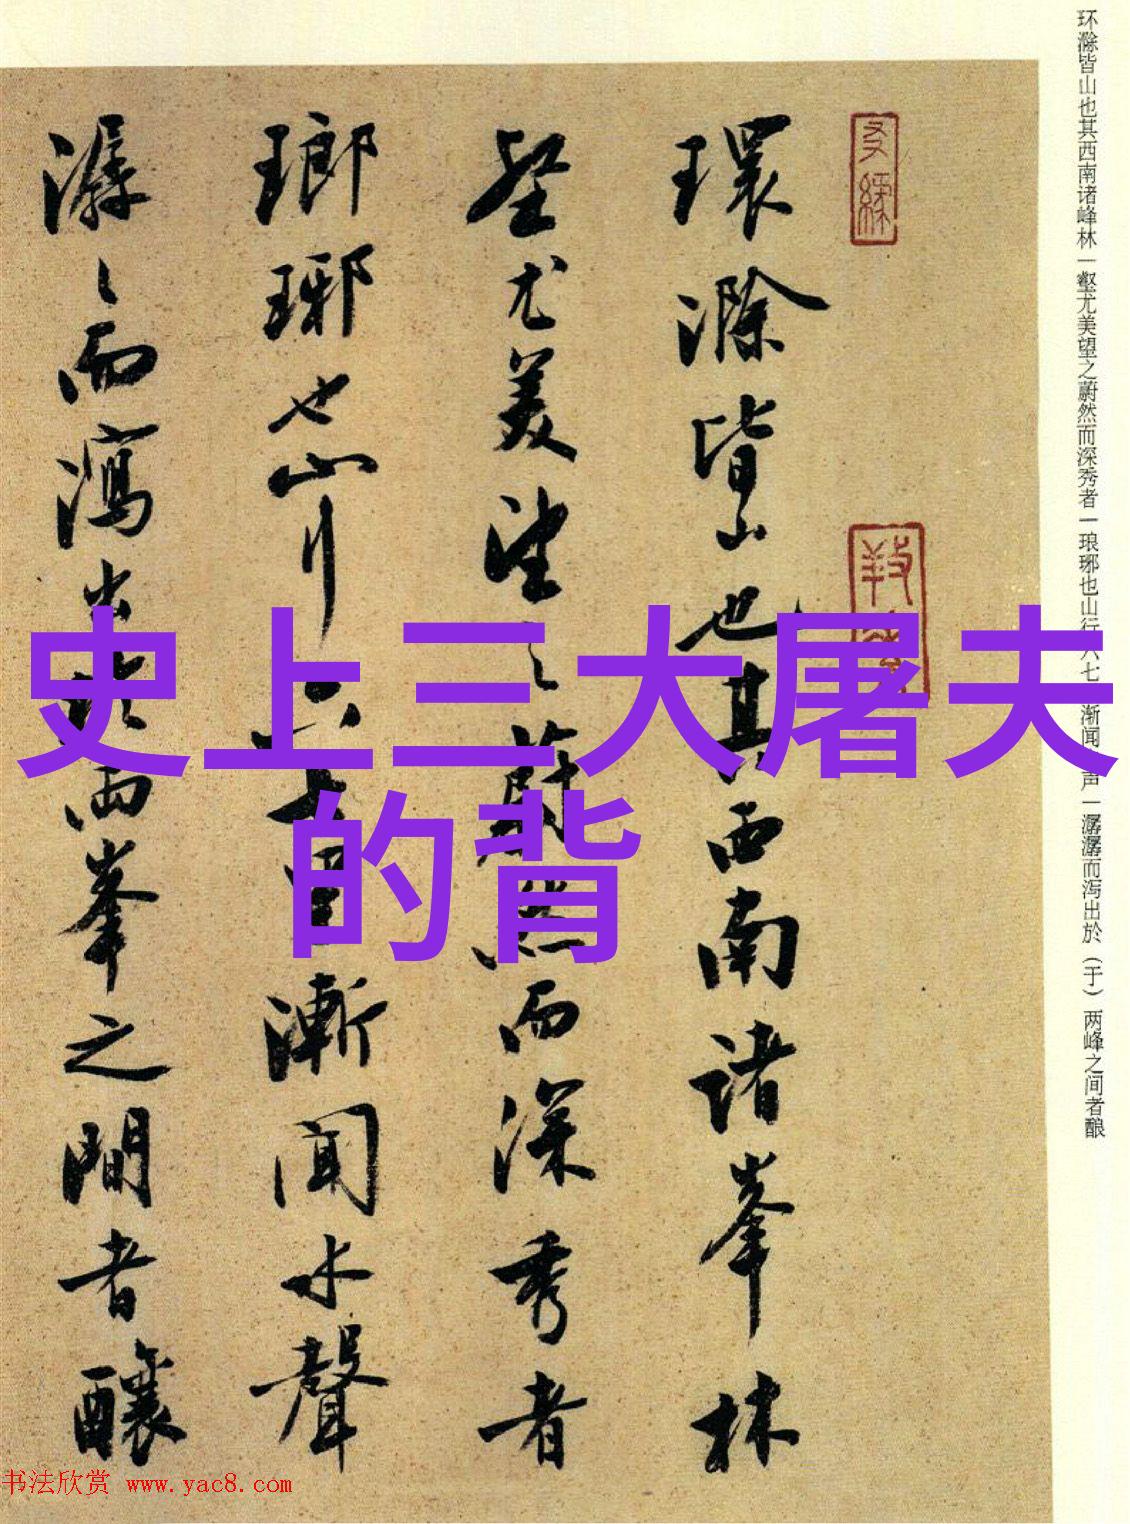 环滁皆山也其西南诸峰林一壑尤美望之蔚然而深秀者一琅琊也山行六七 渐闻 声一潺潺而泻出於（于）两峰之间者酿
環滁皆山也其西南諸峯林
壑尤美望之蔚然而深秀者
瑯琊也山行六七里漸聞水聲
潺〻而瀉出于兩峯之間者釀
史上三大屠夫
的背
书法欣赏 www.yac8.com